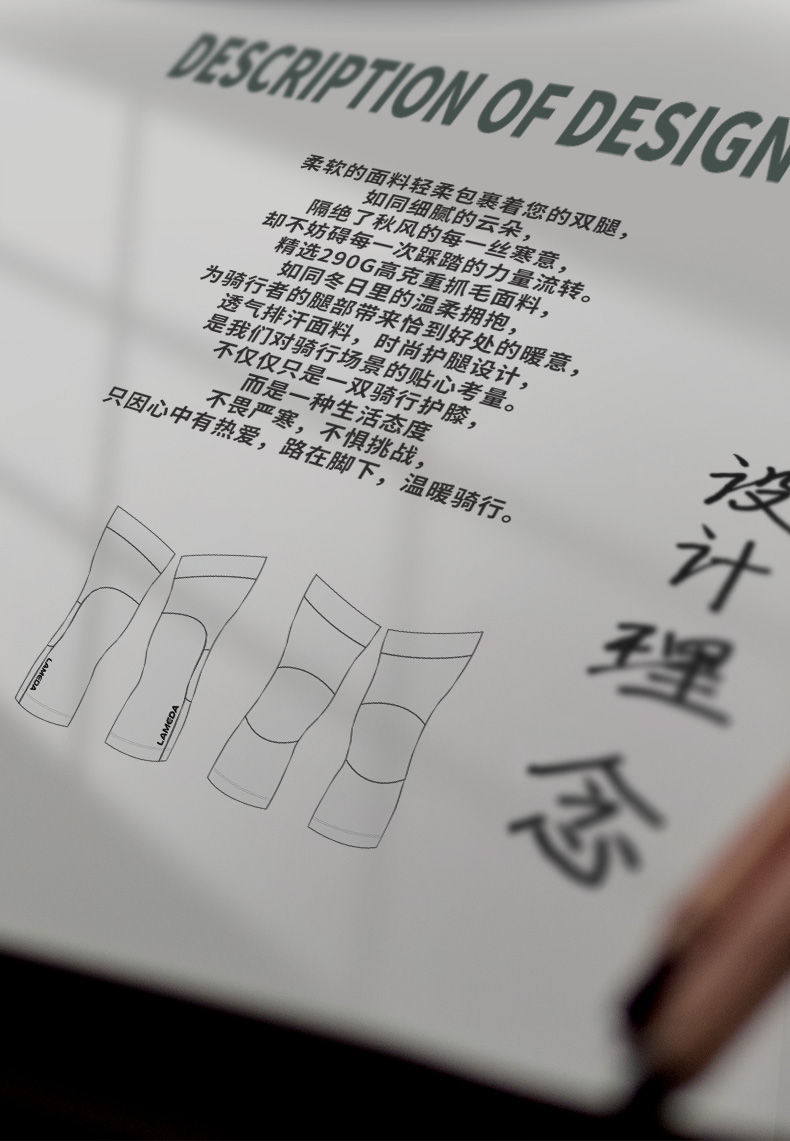 DESCRIPTION OF DESIGN
柔软的面料轻柔包裹着您的双腿，
如同细腻的云朵，
隔绝了秋风的每一丝寒意，
却不妨碍每一次踩踏的力量流转。
精选290G高克重抓毛面料，
如同冬日里的温柔拥抱，
为骑行者的腿部带来恰到好处的暖意，
透气排汗面料，时尚护腿设计，
是我们对骑行场景的贴心考量。
不仅仅只是一双骑行护膝，
而是一种生活态度
不畏严寒，不惧挑战，
只因心中有热爱，路在脚下，温暖骑行。
设计理念
LAMEDA
LAMEDA